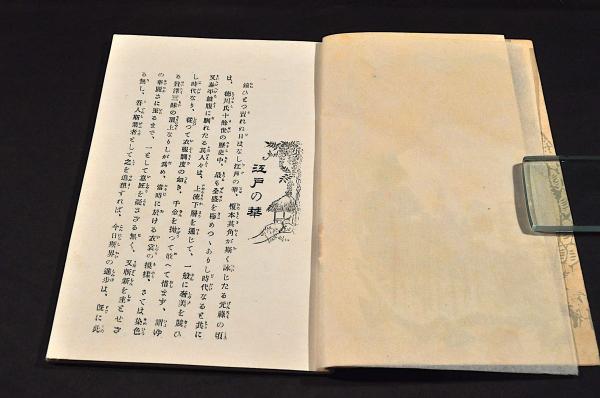 江戸の華
鐘ひとつ賣れぬ日はなし江戸の華、榎本其角が斯く詠じたる元祿の頃
は、德川氏十餘世の歷史中、最も全盛を極めつゝありし時代なると共に
又泰平鼓腹に馴れたる其人々は、上流下層を通じて、一般に奢美を競ひ
し時代なり、從つて衣服調度の如き、千金を拋つて敢へて惜まず、謂ゆ
る贅澤三昧の頂上なりしが爲め、當時に於ける衣裳の模樣、さては染色
の華麗さに至るまで、一として意匠を凝さざる無く、又斬新を主とせざ
る無し、吾人斯業者として之を追想すれば、今日斯界の進步は、旣に此